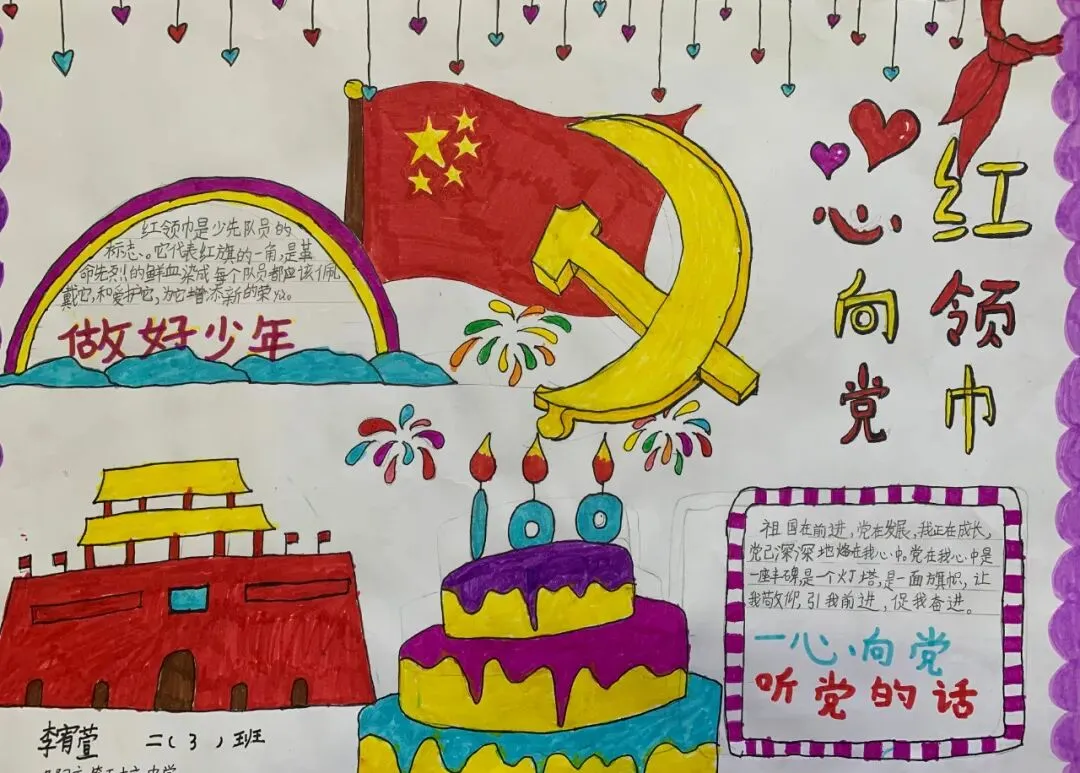 红领巾
心向党
红领巾是少先队员的
标志。它代表红旗的一角,是革
命先烈的鲜血染成每个队员都应该佩
戴它,和爱护它,为它增添新的荣
做好少年
100
祖国在前进,党在发展,我正在成长,
党已深深地烙在我心中。党在我心中是
一座丰碑,是一个灯塔,是一面旗帜,让
我敬仰,引我前进,促我奋进。
一心向党
听党的话
李宥萱 二(3)班